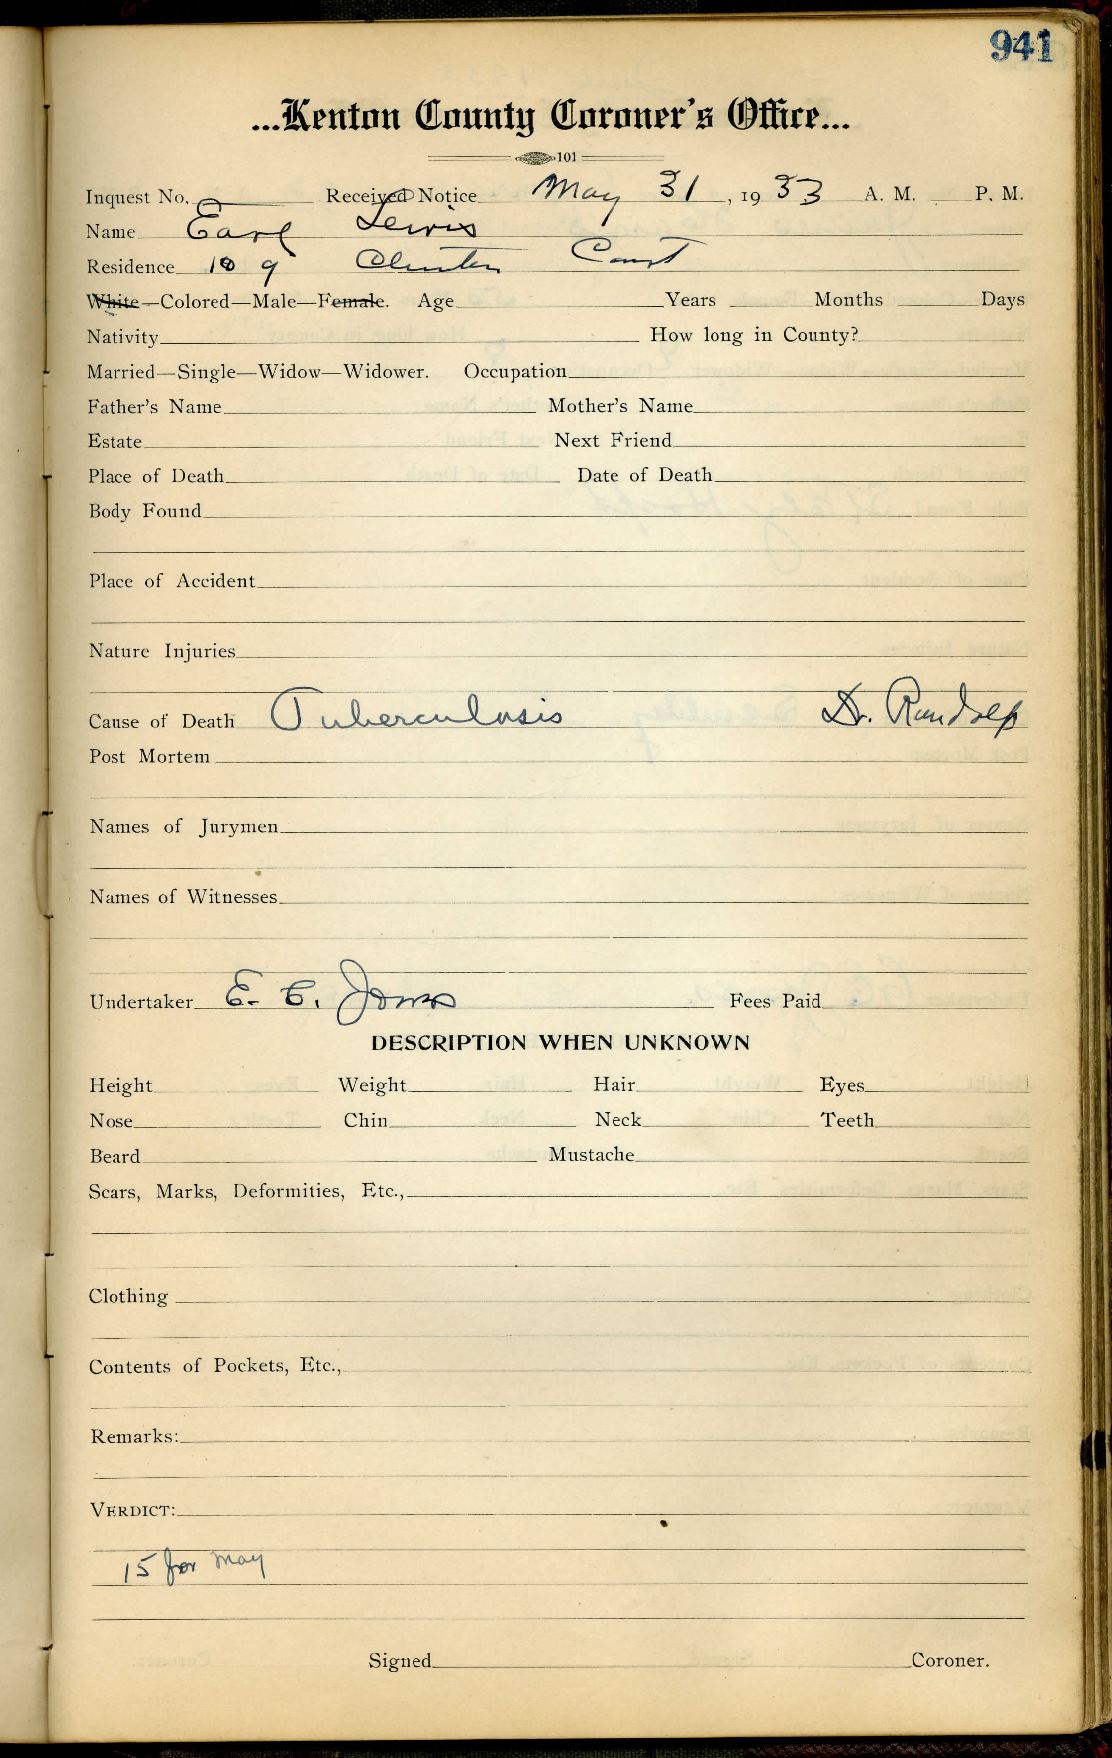 941
...Kenton County Coroner's Office...
101
Inquest No. Received Notice May 31, 1933 A. M. P. M.
Name Earl Lewis
Residence 109 Clinton Court
White—Colored—Male—Female. Age Years Months Days
Nativity How long in County?
Married—Single—Widow—Widower. Occupation
Father's Name Mother's Name
Estate Next Friend
Place of Death Date of Death
Body Found
Place of Accident
Nature Injuries
Cause of Death Tuberculosis Dr. Randolph
Post Mortem
Names of Jurymen
Names of Witnesses
Undertaker E. C. Jones Fees Paid
DESCRIPTION WHEN UNKNOWN
Height Weight Hair Eyes
Nose Chin Neck Teeth
Beard Mustache
Scars, Marks, Deformities, Etc.,
Clothing
Contents of Pockets, Etc.,
Remarks:
VERDICT:
15 for May
Signed Coroner.